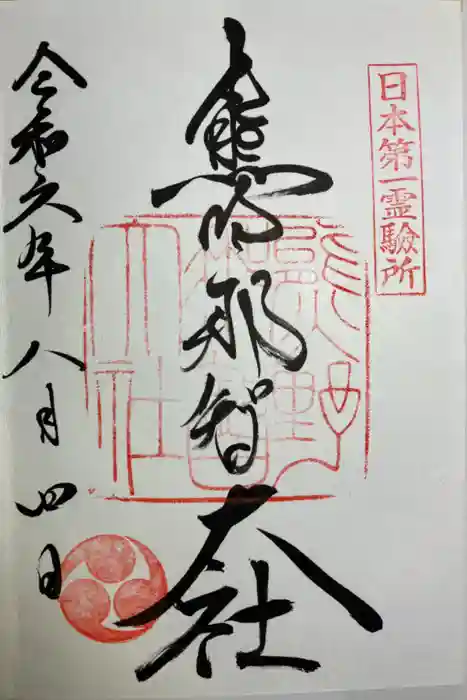 日本第一霊驗所
熊野那智大社
令和六年八月四日
熊野
那智
大社